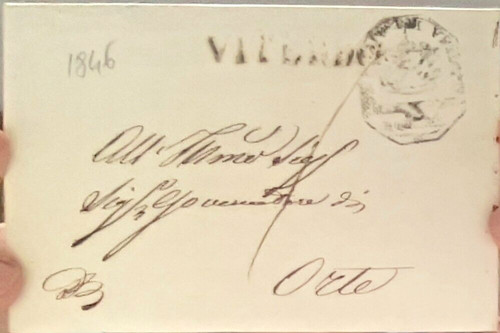 1846
VITERBO
All' Illmo Sig
Sigr Governatore di
Orte